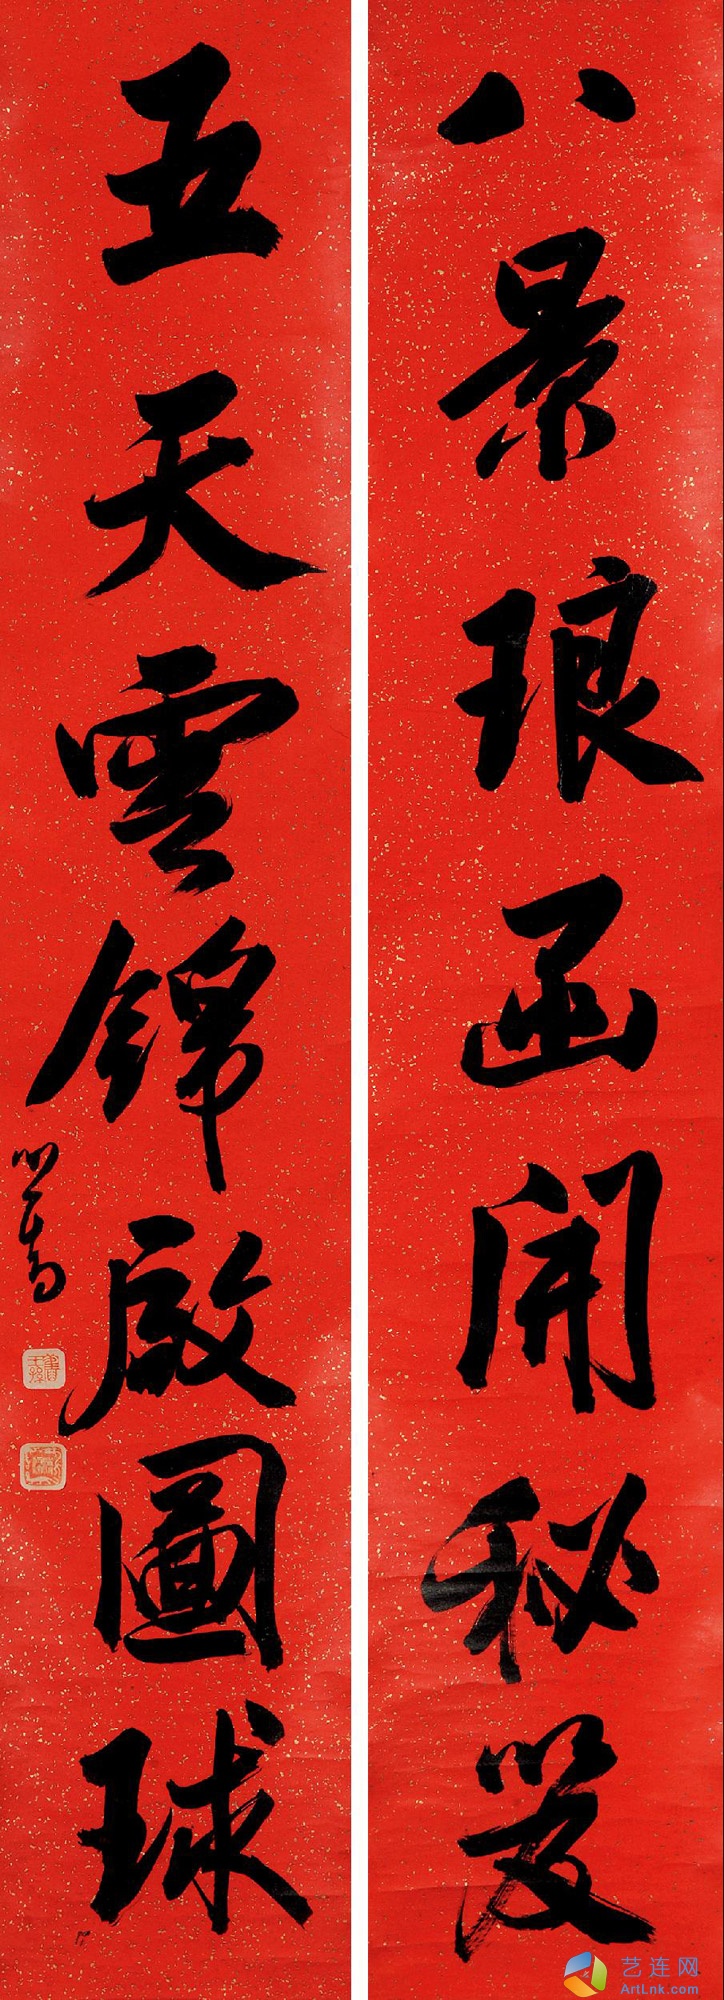 八景琅函開秘笈
五天雲錦啟圖球
心畬
艺连网
ArtLnk.com